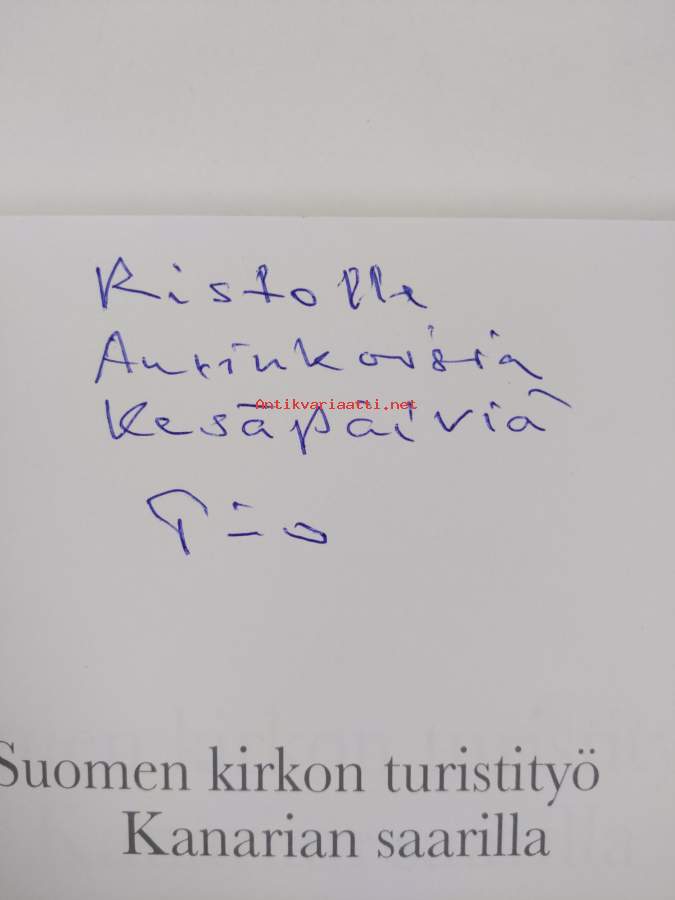 Ristolle
Aurinkoisia
Antikvariaatti.net
Kesäpäiviä
Suomen kirkon turistityö
Kanarian saarilla